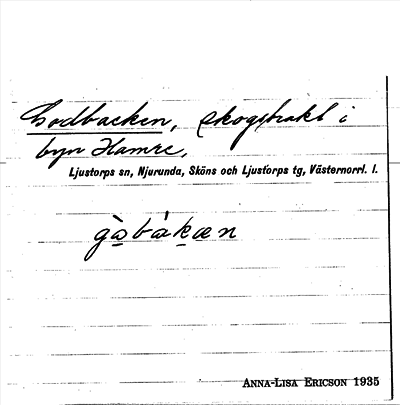 Godbacken, skogstrakt i
byn Hamre,
Ljustorps sn, Njurunda, Sköns och Ljustorps tg, Västernorrl. l.
gòbàkæn
ANNA-LISA ERICSON 1935